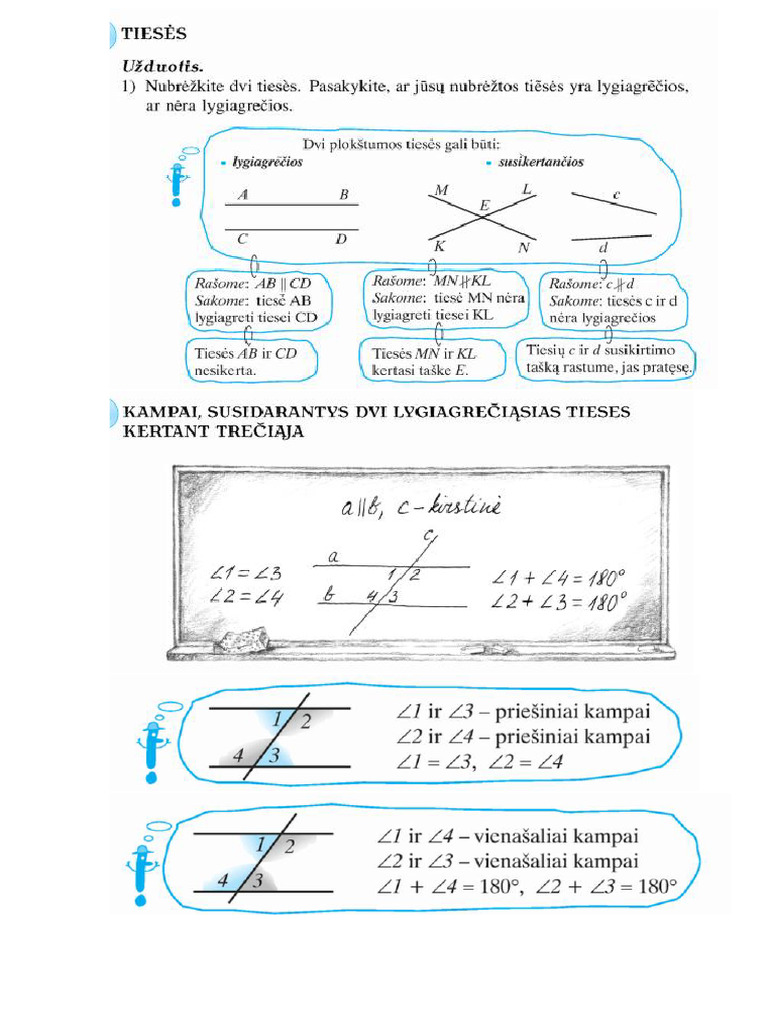 TIESĖS
Užduotis.
1) Nubrėžkite dvi tieses. Pasakykite, ar jūsų nubrėžtos tiẽsės yra lygiagrẽčios,
ar nėra lygiagrečios.
Dvi plokštumos tiesės gali būti:
• lygiagrẽčios
• susìkertančios
A B
C D
M L
E
K N
c
d
Rašome: AB || CD
Sakome: tiesė AB
lygiagreti tiesei CD
Rašome: MN ∦ KL
Sakome: tiesė MN nėra
lygiagreti tiesei KL
Rašome: c ∦ d
Sakome: tiesės c ir d
nėra lygiagrečios
Tiesės AB ir CD
nesikerta.
Tiesės MN ir KL
kertasi taške E.
Tiesių c ir d susikirtimo
tašką rastume, jas pratęsę.
KAMPAI, SUSIDARANTYS DVI LYGIAGREČIĄSIAS TIESES
KERTANT TREČIĄJA
a||b, c – kirstinė
c
a
1 2
b 4 3
∠1 = ∠3
∠2 = ∠4
∠1 + ∠4 = 180°
∠2 + ∠3 = 180°
1 2
4 3
∠1 ir ∠3 – priešiniai kampai
∠2 ir ∠4 – priešiniai kampai
∠1 = ∠3, ∠2 = ∠4
1 2
4 3
∠1 ir ∠4 – vienašaliai kampai
∠2 ir ∠3 – vienašaliai kampai
∠1 + ∠4 = 180°, ∠2 + ∠3 = 180°